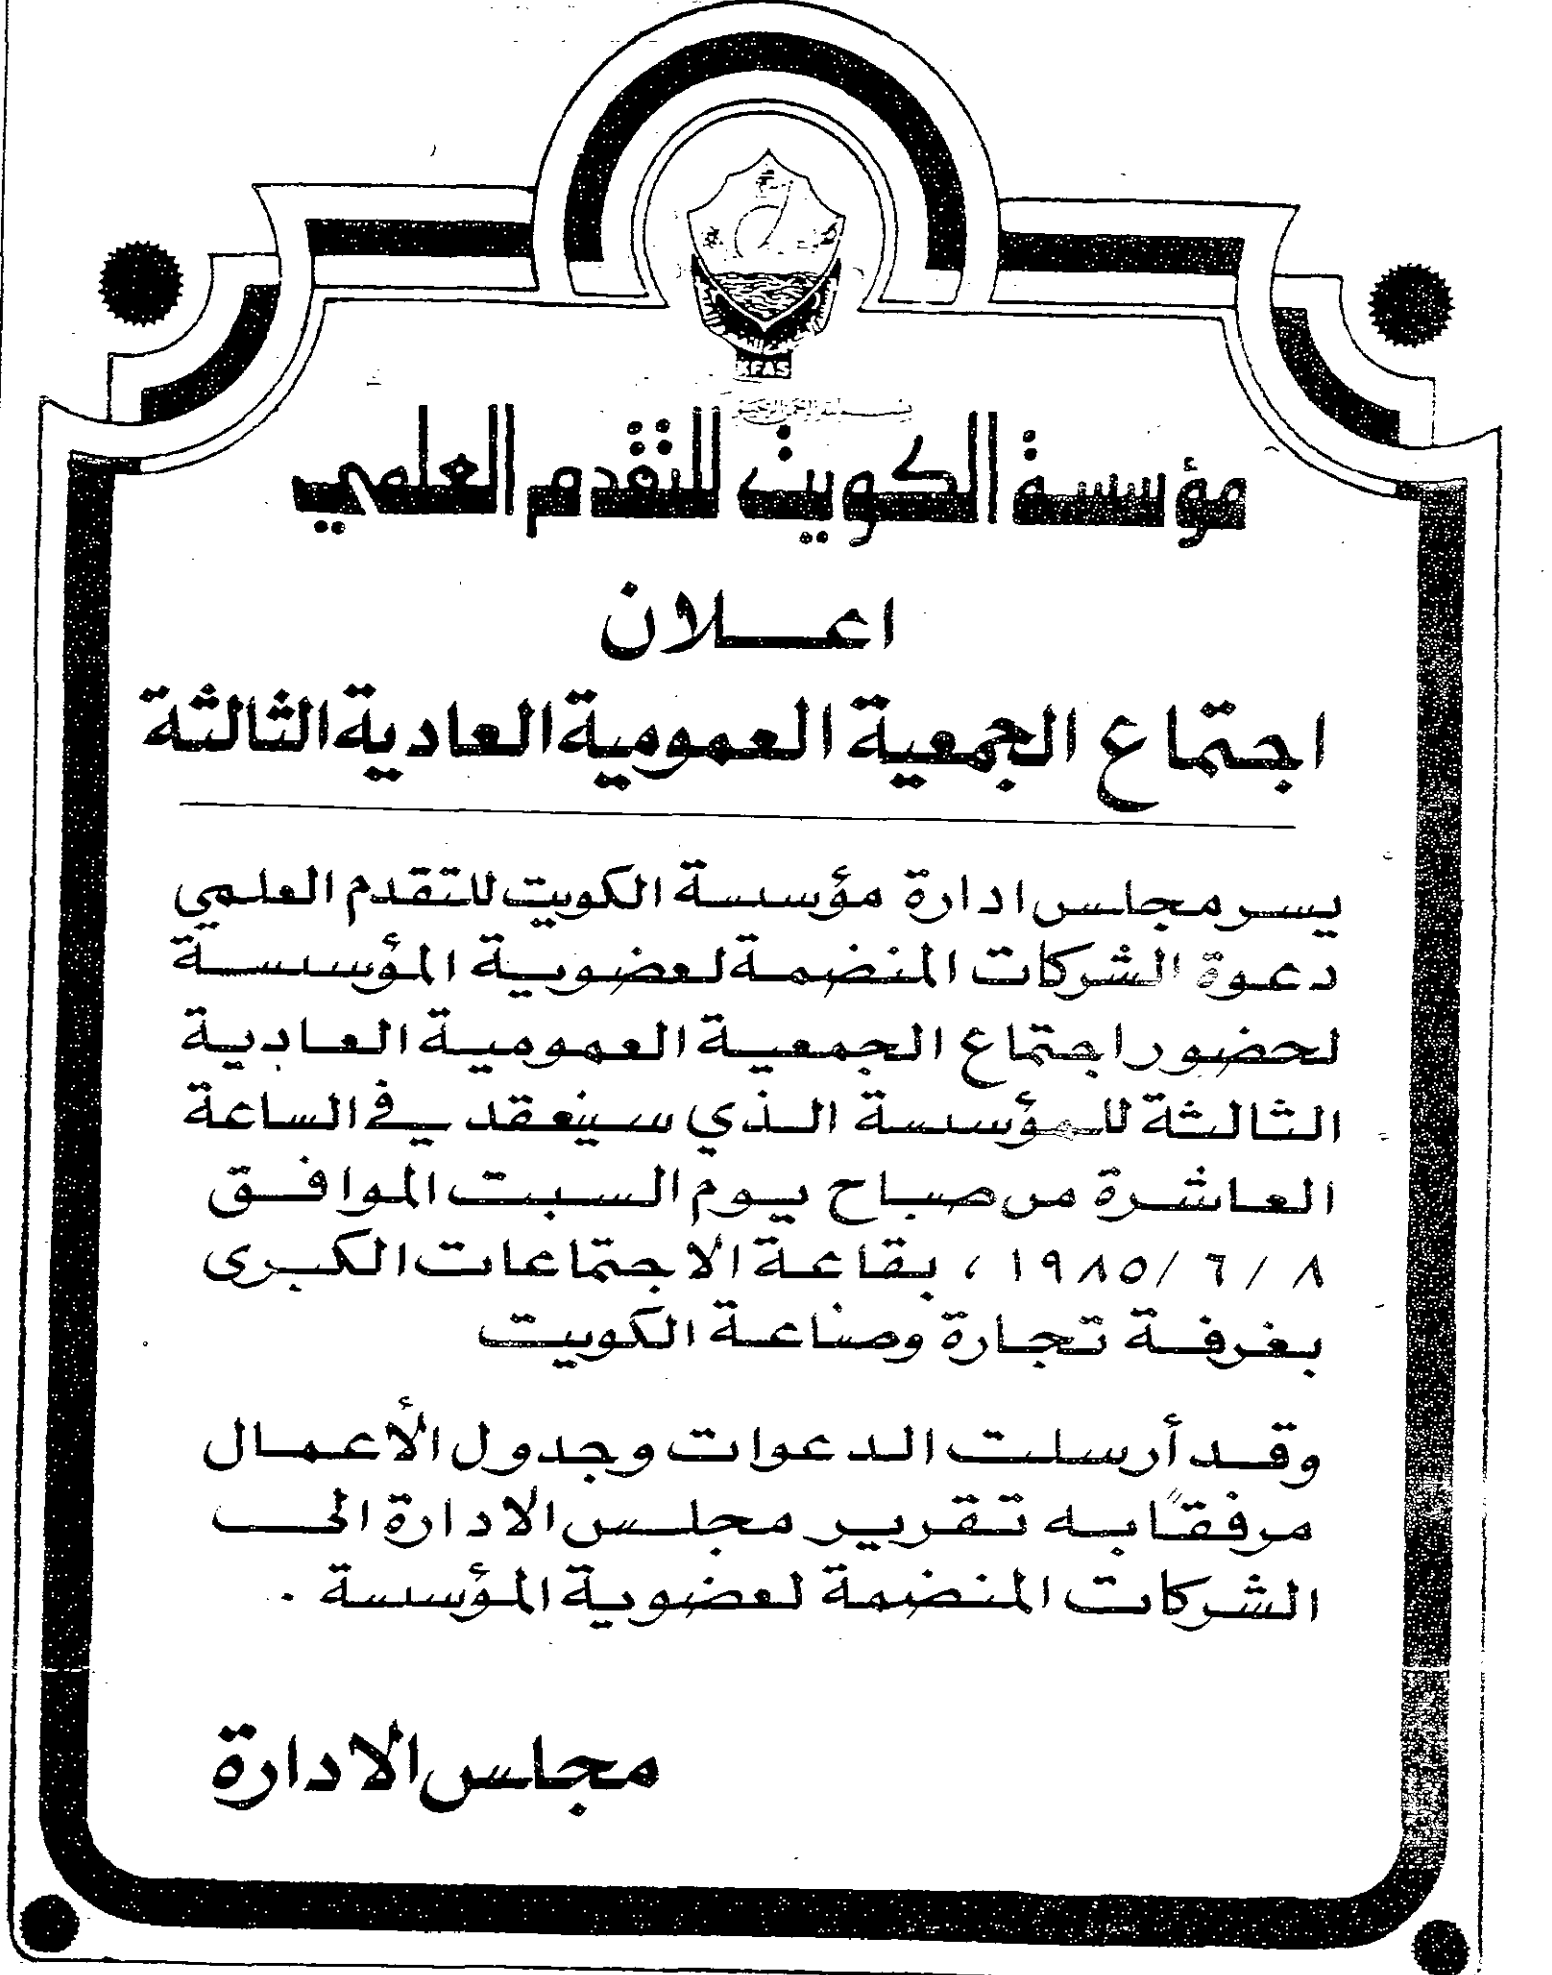 KFAS
مؤسسة الكويت للتقدم العلمي
اعلان
اجتماع الجمعية العمومية العادية الثالثة
يسر مجلس ادارة مؤسسة الكويت للتقدم العلمي
دعوة الشركات المنضمة لعضوية المؤسسة
لحضور اجتماع الجمعية العمومية العادية
الثالثة للمؤسسة الذي سينعقد في الساعة
العاشرة من صباح يوم السبت الموافق
٨ / ٦ /١٩٨٥ ، بقاعة الاجتماعات الكبرى
بغرفة تجارة وصناعة الكويت
وقد أرسلت الدعوات وجدول الأعمال
مرفقاً به تقرير مجلس الادارة الى
الشركات المنضمة لعضوية المؤسسة .
مجلس الادارة